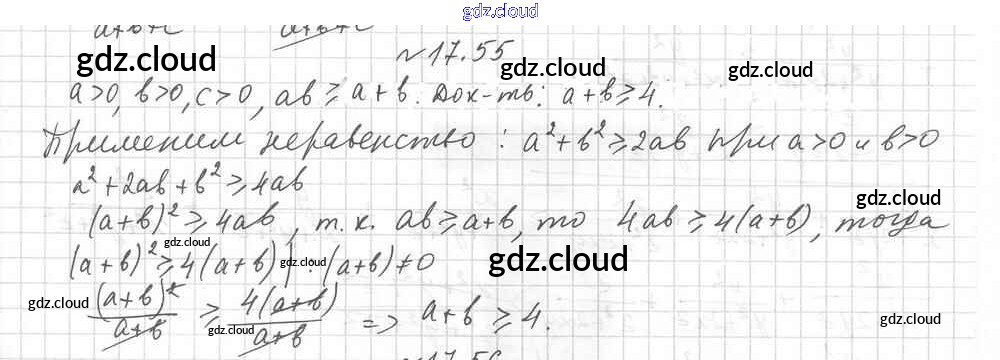 gdz.cloud
a+b+c a+b+c
№17.55
gdz.cloud gdz.cloud gdz.cloud
a>0, b>0, c>0, ab ≥ a+b. Док-ть: a+b ≥ 4.
Применим неравенство: a²+b² ≥ 2ab при a>0 и b>0
a²+2ab+b² ≥ 4ab
gdz.cloud
(a+b)² ≥ 4ab, т.к. ab ≥ a+b, то 4ab ≥ 4(a+b), тогда
gdz.cloud
(a+b)² ≥ 4(a+b) | : (a+b) ≠ 0
gdz.cloud gdz.cloud
(a+b)² / a+b ≥ 4(a+b) / a+b => a+b ≥ 4.
gdz.cloud gdz.cloud gdz.cloud
№17.56